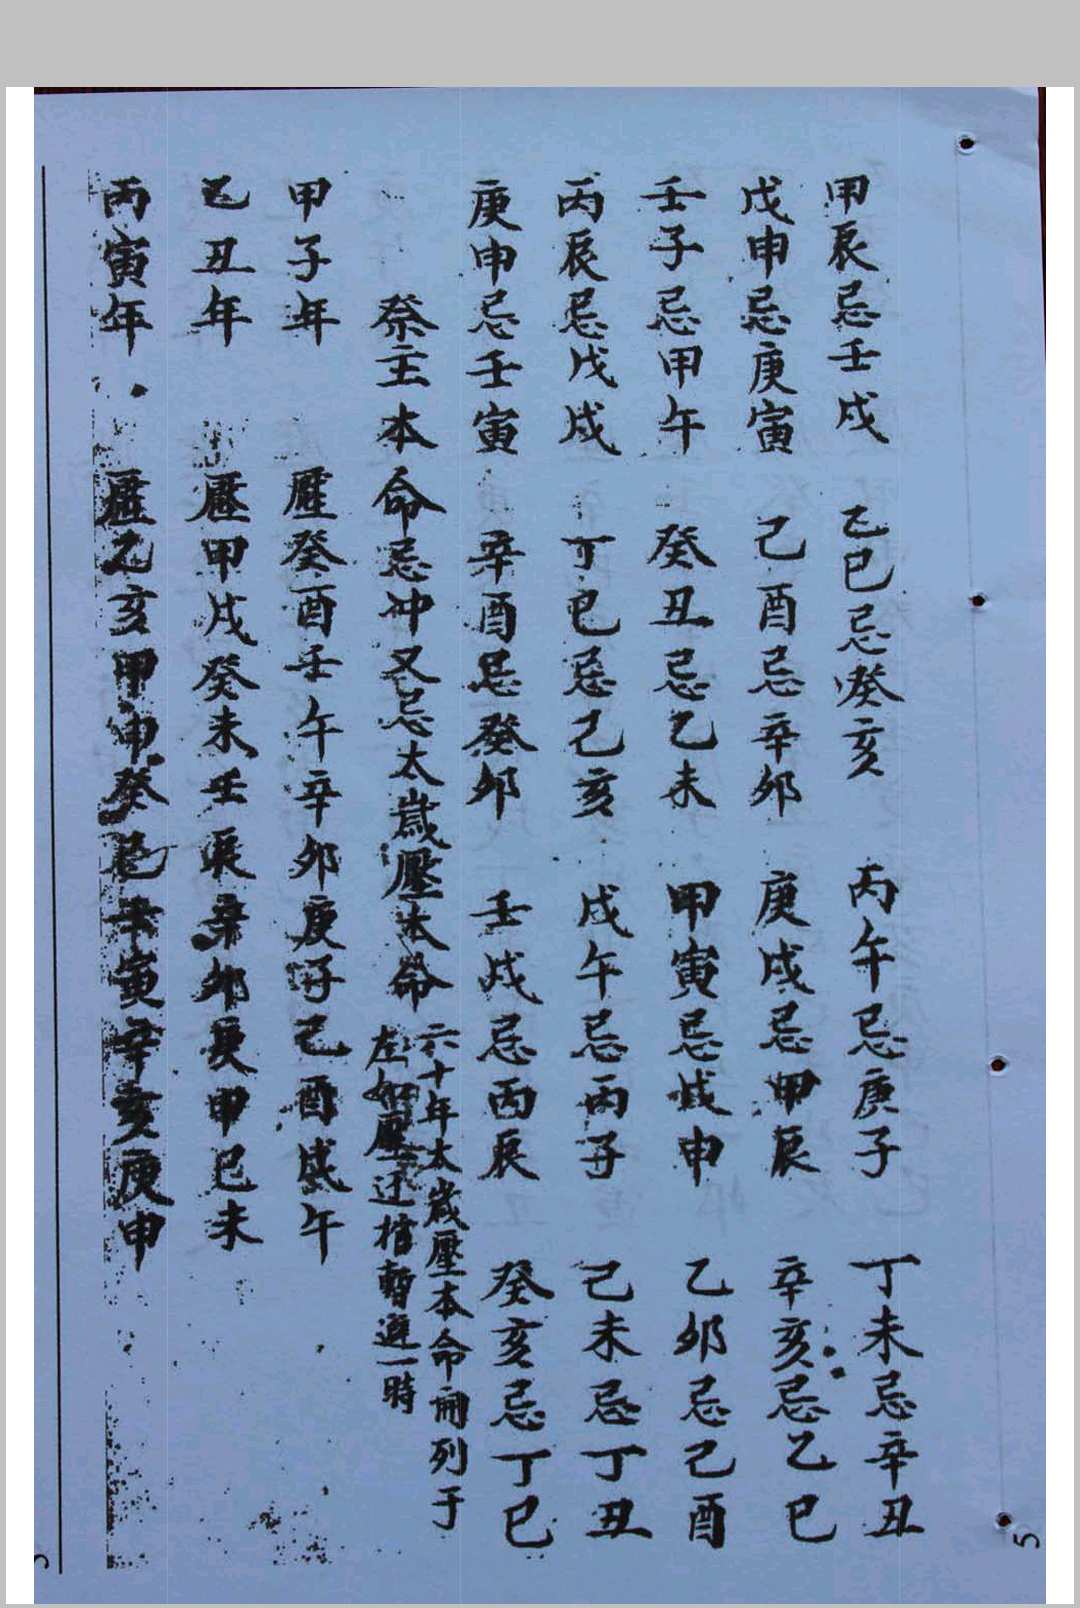 甲辰忌壬戌 乙巳忌癸亥 丙午忌庚子 丁未忌辛丑
戊申忌庚寅 己酉忌辛卯 庚戌忌甲辰 辛亥忌乙巳
壬子忌甲午 癸丑忌乙未 甲寅忌戊申 乙卯忌己酉
丙辰忌戊戌 丁巳忌己亥 戊午忌丙子 己未忌丁丑
庚申忌壬寅 辛酉忌癸卯 壬戌忌丙辰 癸亥忌丁巳
祭主本命忌冲又忌太歲壓本命
六十年太歲壓本命開列于
左如壓迁棺暫避一時
甲子年 壓癸酉壬午辛卯庚子己酉戊午
乙丑年 壓甲戌癸未壬辰辛卯庚申己未
丙寅年 壓乙亥甲申癸巳壬寅辛亥庚申
5